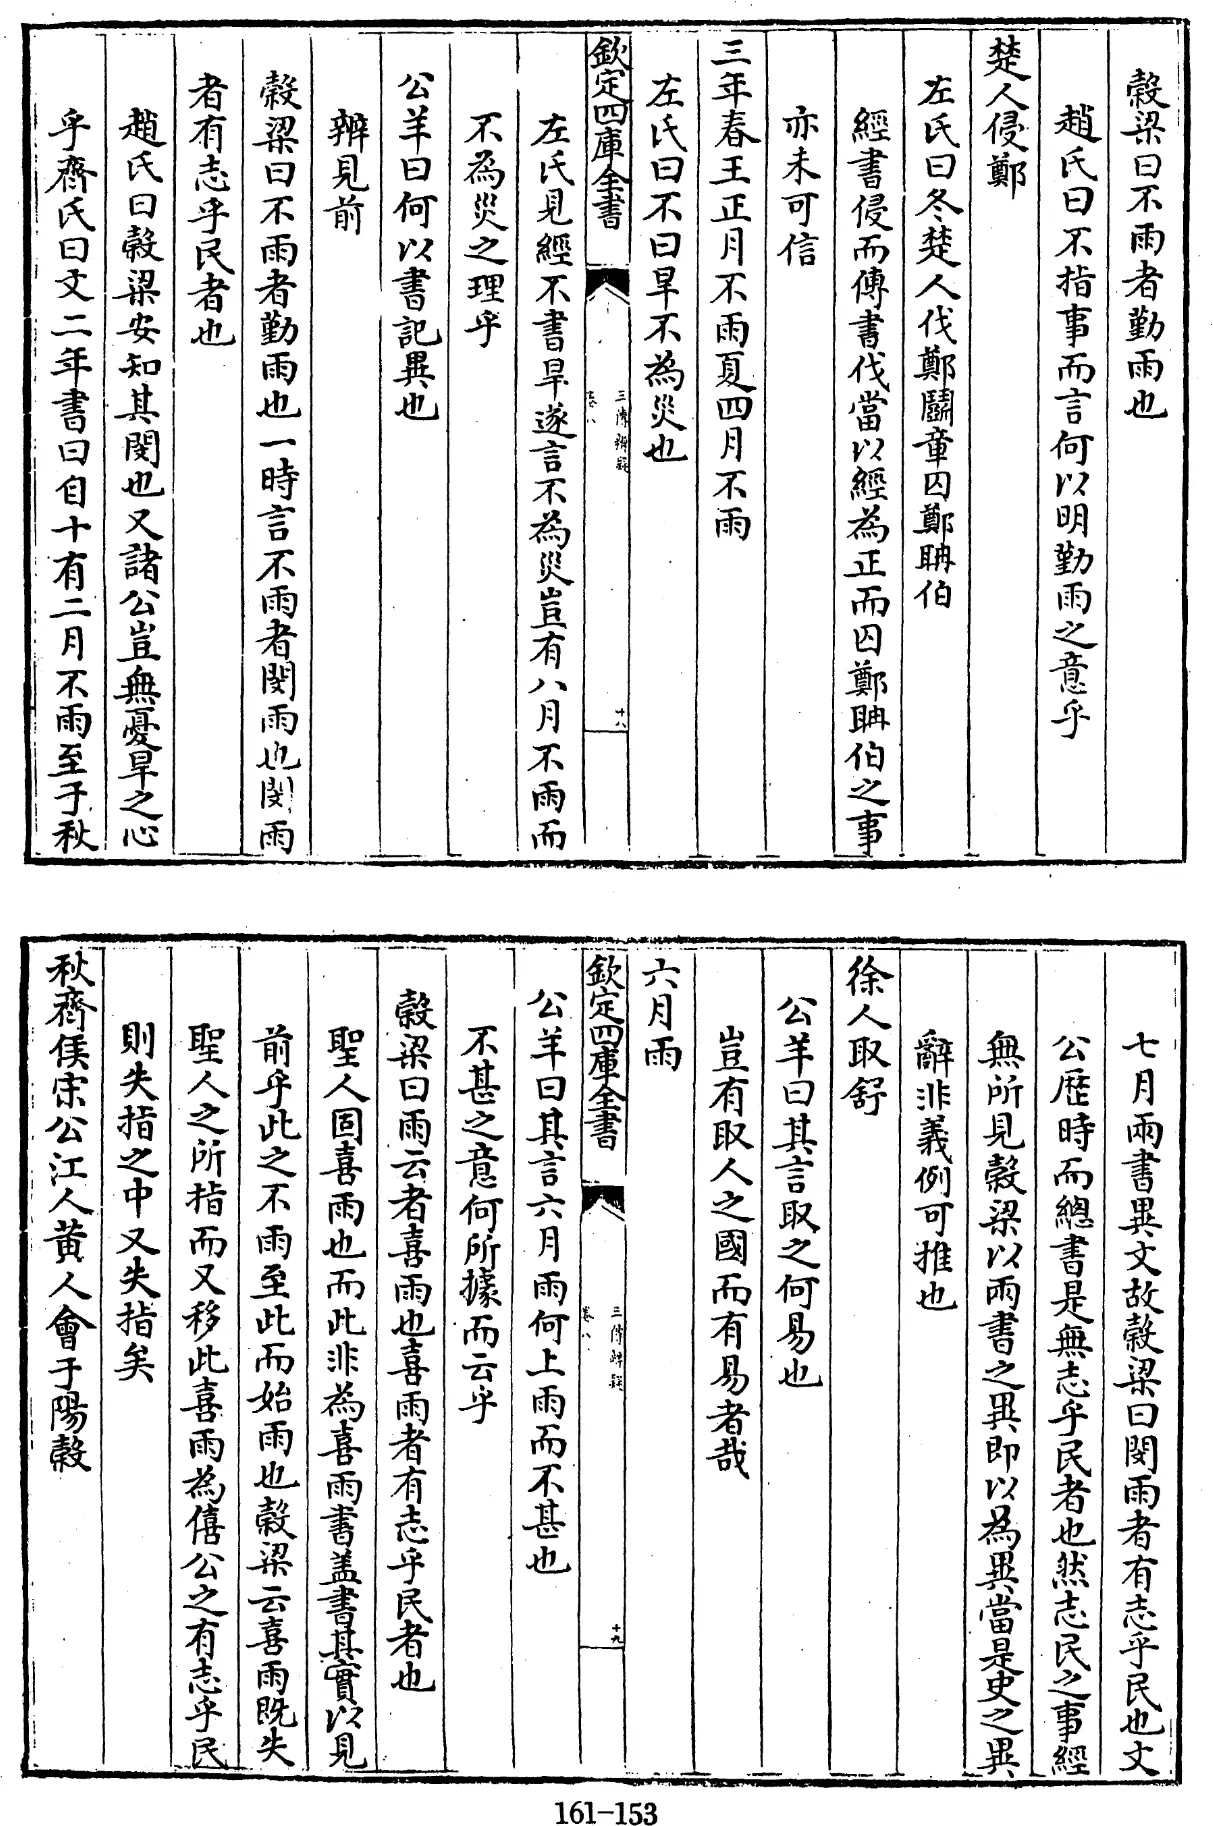 穀梁曰不雨者勤雨也
趙氏曰不指事而言何以明勤雨之意乎
楚人侵鄭
左氏曰冬楚人伐鄭鬬章囚鄭聃伯
經書侵而傳書伐當以經為正而囚鄭聃伯之事
亦未可信
三年春王正月不雨夏四月不雨
左氏曰不曰旱不為災也
欽定四庫全書
三傳辨疑
卷八
十八
左氏見經不書旱遂言不為災豈有八月不雨而
不為災之理乎
公羊曰何以書記異也
辨見前
穀梁曰不雨者勤雨也一時言不雨者閔雨也閔雨
者有志乎民者也
趙氏曰穀梁安知其閔也又諸公豈無憂旱之心
乎齊氏曰文二年書曰自十有二月不雨至于秋
七月兩書異文故穀梁曰閔雨者有志乎民也文
公歷時而總書是無志乎民者也然志民之事經
無所見穀梁以兩書之異即以為異當是史之異
辭非義例可推也
徐人取舒
公羊曰其言取之何易也
豈有取人之國而有易者哉
六月雨
欽定四庫全書
三傳辨疑
卷八
十九
公羊曰其言六月雨何上雨而不甚也
不甚之意何所據而云乎
穀梁曰雨云者喜雨也喜雨者有志乎民者也
聖人固喜雨也而此非為喜雨書盖書其實以見
前乎此之不雨至此而始雨也穀梁云喜雨既失
聖人之所指而又移此喜雨為僖公之有志乎民
則失指之中又失指矣
秋齊侯宋公江人黃人會于陽穀
161-153